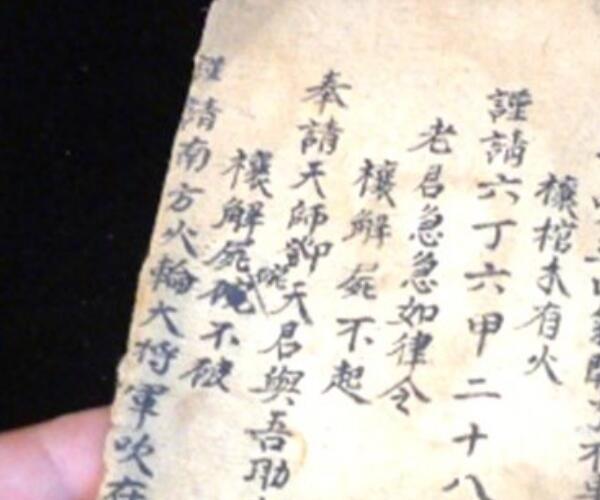 禳棺未有火
謹請六丁六甲二十八
老君急急如律令
禳解屍不起
奉請天師天君與吾助
禳解屍不破
謹請南方火輪大将軍吹在